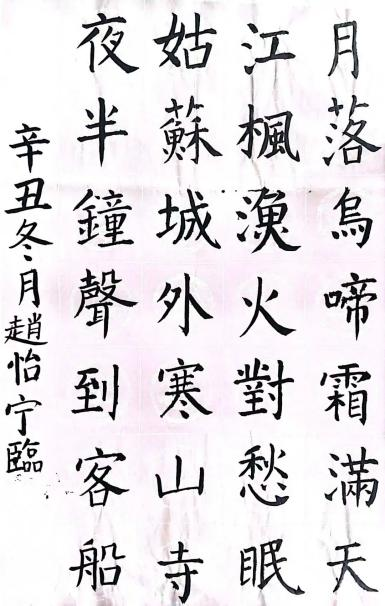 月落烏啼霜滿天
江楓漁火對愁眠
姑蘇城外寒山寺
夜半鐘聲到客船
辛丑冬月趙怡宁臨